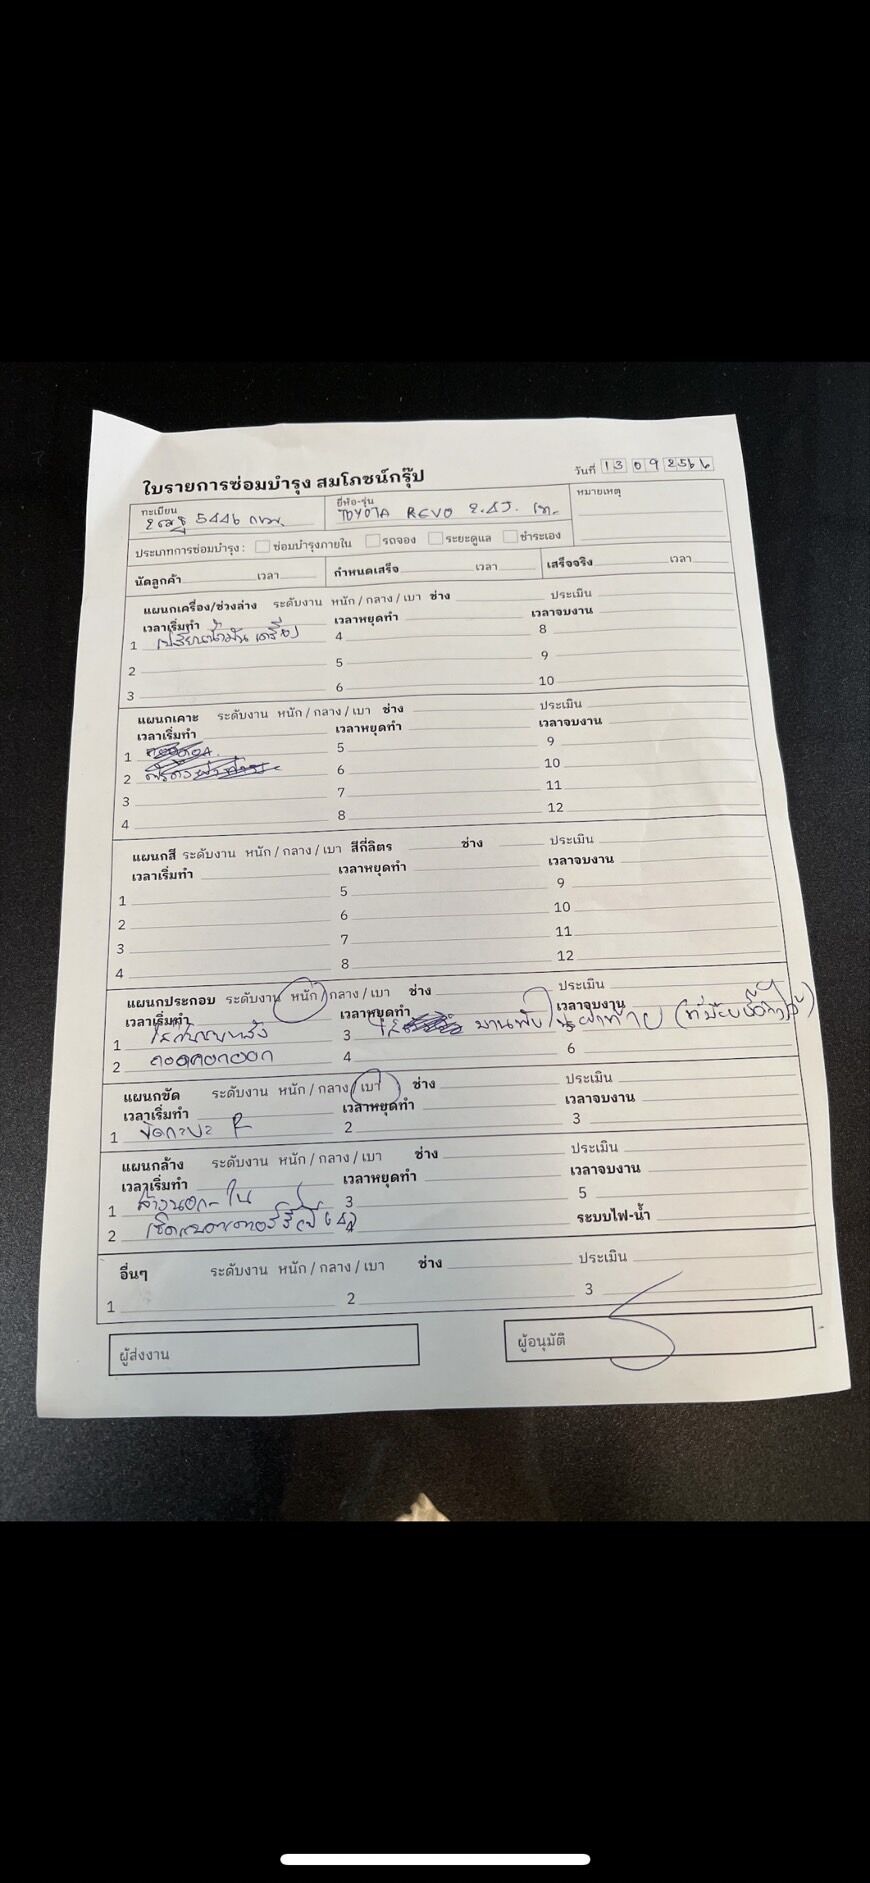 ใบรายการซ่อมบำรุง สมโภชน์กรุ๊ป
วันที่ 13 09 2566
ทะเบียน
5446 กทม.
ยี่ห้อ-รุ่น
TOYOTA REVO 2.4J.
หมายเหตุ
ประเภทการซ่อมบำรุง : ซ่อมบำรุงภายใน รถจอง ระยะดูแล ชำระเอง
นัดลูกค้า เวลา กำหนดเสร็จ เวลา เสร็จจริง เวลา
แผนกเครื่อง/ช่วงล่าง ระดับงาน หนัก / กลาง / เบา ช่าง ประเมิน
เวลาเริ่มทำ เวลาหยุดทำ เวลาจบงาน
1 เปลี่ยนน้ำมันเครื่อง 4 8
2 5 9
3 6 10
แผนกเคาะ ระดับงาน หนัก / กลาง / เบา ช่าง ประเมิน
เวลาเริ่มทำ เวลาหยุดทำ เวลาจบงาน
1 5 9
2 6 10
3 7 11
4 8 12
แผนกสี ระดับงาน หนัก / กลาง / เบา สีกี่ลิตร ช่าง ประเมิน
เวลาเริ่มทำ เวลาหยุดทำ เวลาจบงาน
1 5 9
2 6 10
3 7 11
4 8 12
แผนกประกอบ ระดับงาน หนัก / กลาง / เบา ช่าง ประเมิน
เวลาเริ่มทำ เวลาหยุดทำ เวลาจบงาน
1 3 บานพับ ฝาท้าย 5
2 4 6
แผนกขัด ระดับงาน หนัก / กลาง / เบา ช่าง ประเมิน
เวลาเริ่มทำ เวลาหยุดทำ เวลาจบงาน
1 ขัดกะบะ 2 3
แผนกล้าง ระดับงาน หนัก / กลาง / เบา ช่าง ประเมิน
เวลาเริ่มทำ เวลาหยุดทำ เวลาจบงาน
1 ล้างนอก-ใน 3 5
2 ระบบไฟ-น้ำ
อื่นๆ ระดับงาน หนัก / กลาง / เบา ช่าง ประเมิน
1 2 3
ผู้ส่งงาน ผู้อนุมัติ